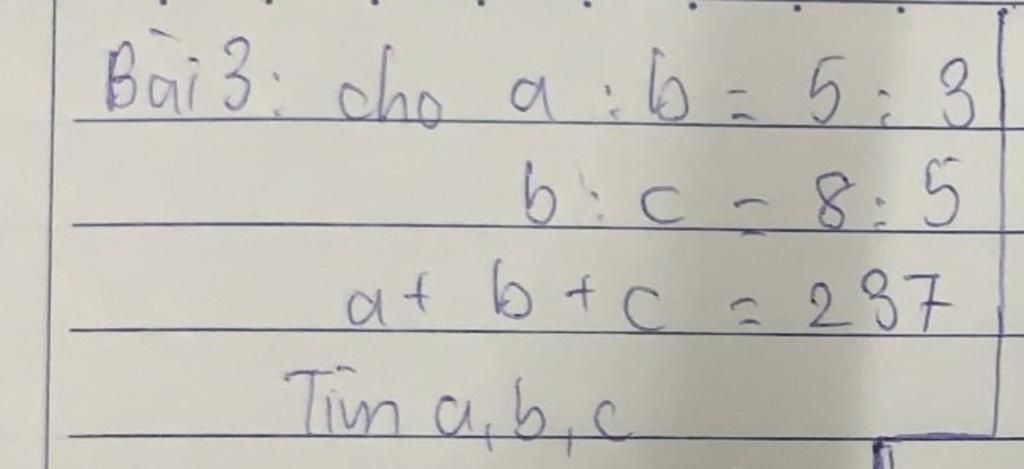 Bài 3: cho a : b = 5 : 3
b : c = 8 : 5
a + b + c = 237
Tìm a, b, c